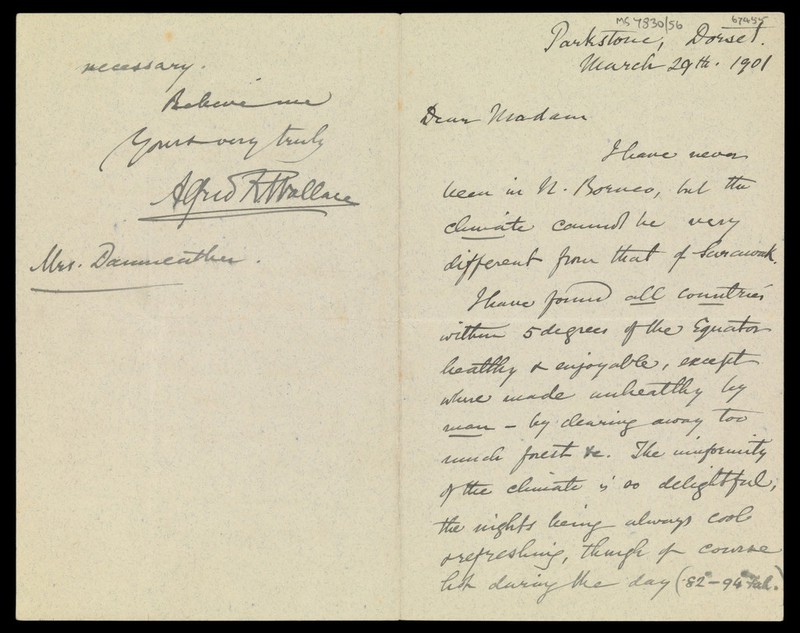 MS 7830/56
67445
Parkstone, Dorset.
March 29th. 1901
Dear Madam
I have never
been in N. Borneo, but the
climate cannot be very
different from that of Sarawak.
I have found all countries
within 5 degrees of the Equator
healthy & enjoyable, except
where made unhealthy by
man - by clearing away too
much forest &c. The uniformity
of the climate is so delightful,
the nights being always cool
& refreshing, though of course
hot during the day (82°-94° Fah.)
necessary.
Believe me
Yours very truly
Alfred R. Wallace
Mrs.